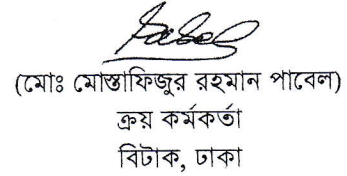 Pabel
(মোঃ মোস্তাফিজুর রহমান পাবেল)
ক্রয় কর্মকর্তা
বিটাক, ঢাকা